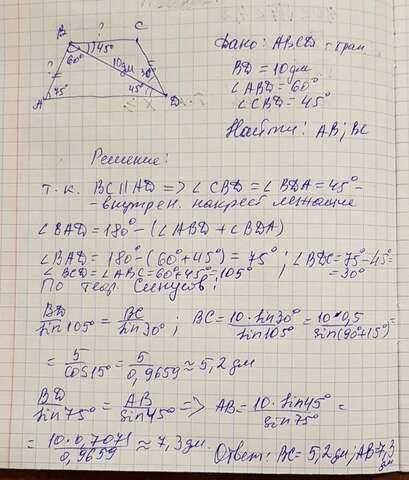 B ? C
60° 45°
? 10дм 30°
A 45° 45° D
Дано: ABCD - трап.
BD = 10дм
∠ABD = 60°
∠CBD = 45°
Найти: AB; BC
Решение:
т.к. BC||AD => ∠CBD = ∠BDA = 45° -
- внутрен. накрест лежащие
∠BAD = 180° - (∠ABD + ∠BDA)
∠BAD = 180° - (60° + 45°) = 75° ; ∠BDC = 75° - 45° =
∠BCD = ∠ABC = 60° + 45° = 105° = 30°
По теор. Синусов:
BD/sin105° = BC/sin30° ; BC = 10·sin30°/sin105° = 10*0,5/sin(90°+15°) =
= 5/cos15° = 5/0,9659 ≈ 5,2 дм
BD/sin75° = AB/sin45° => AB = 10·sin45°/sin75° =
= 10·0,7071/0,9659 ≈ 7,3 дм.
Ответ: BC = 5,2 дм; AB = 7,3
дм